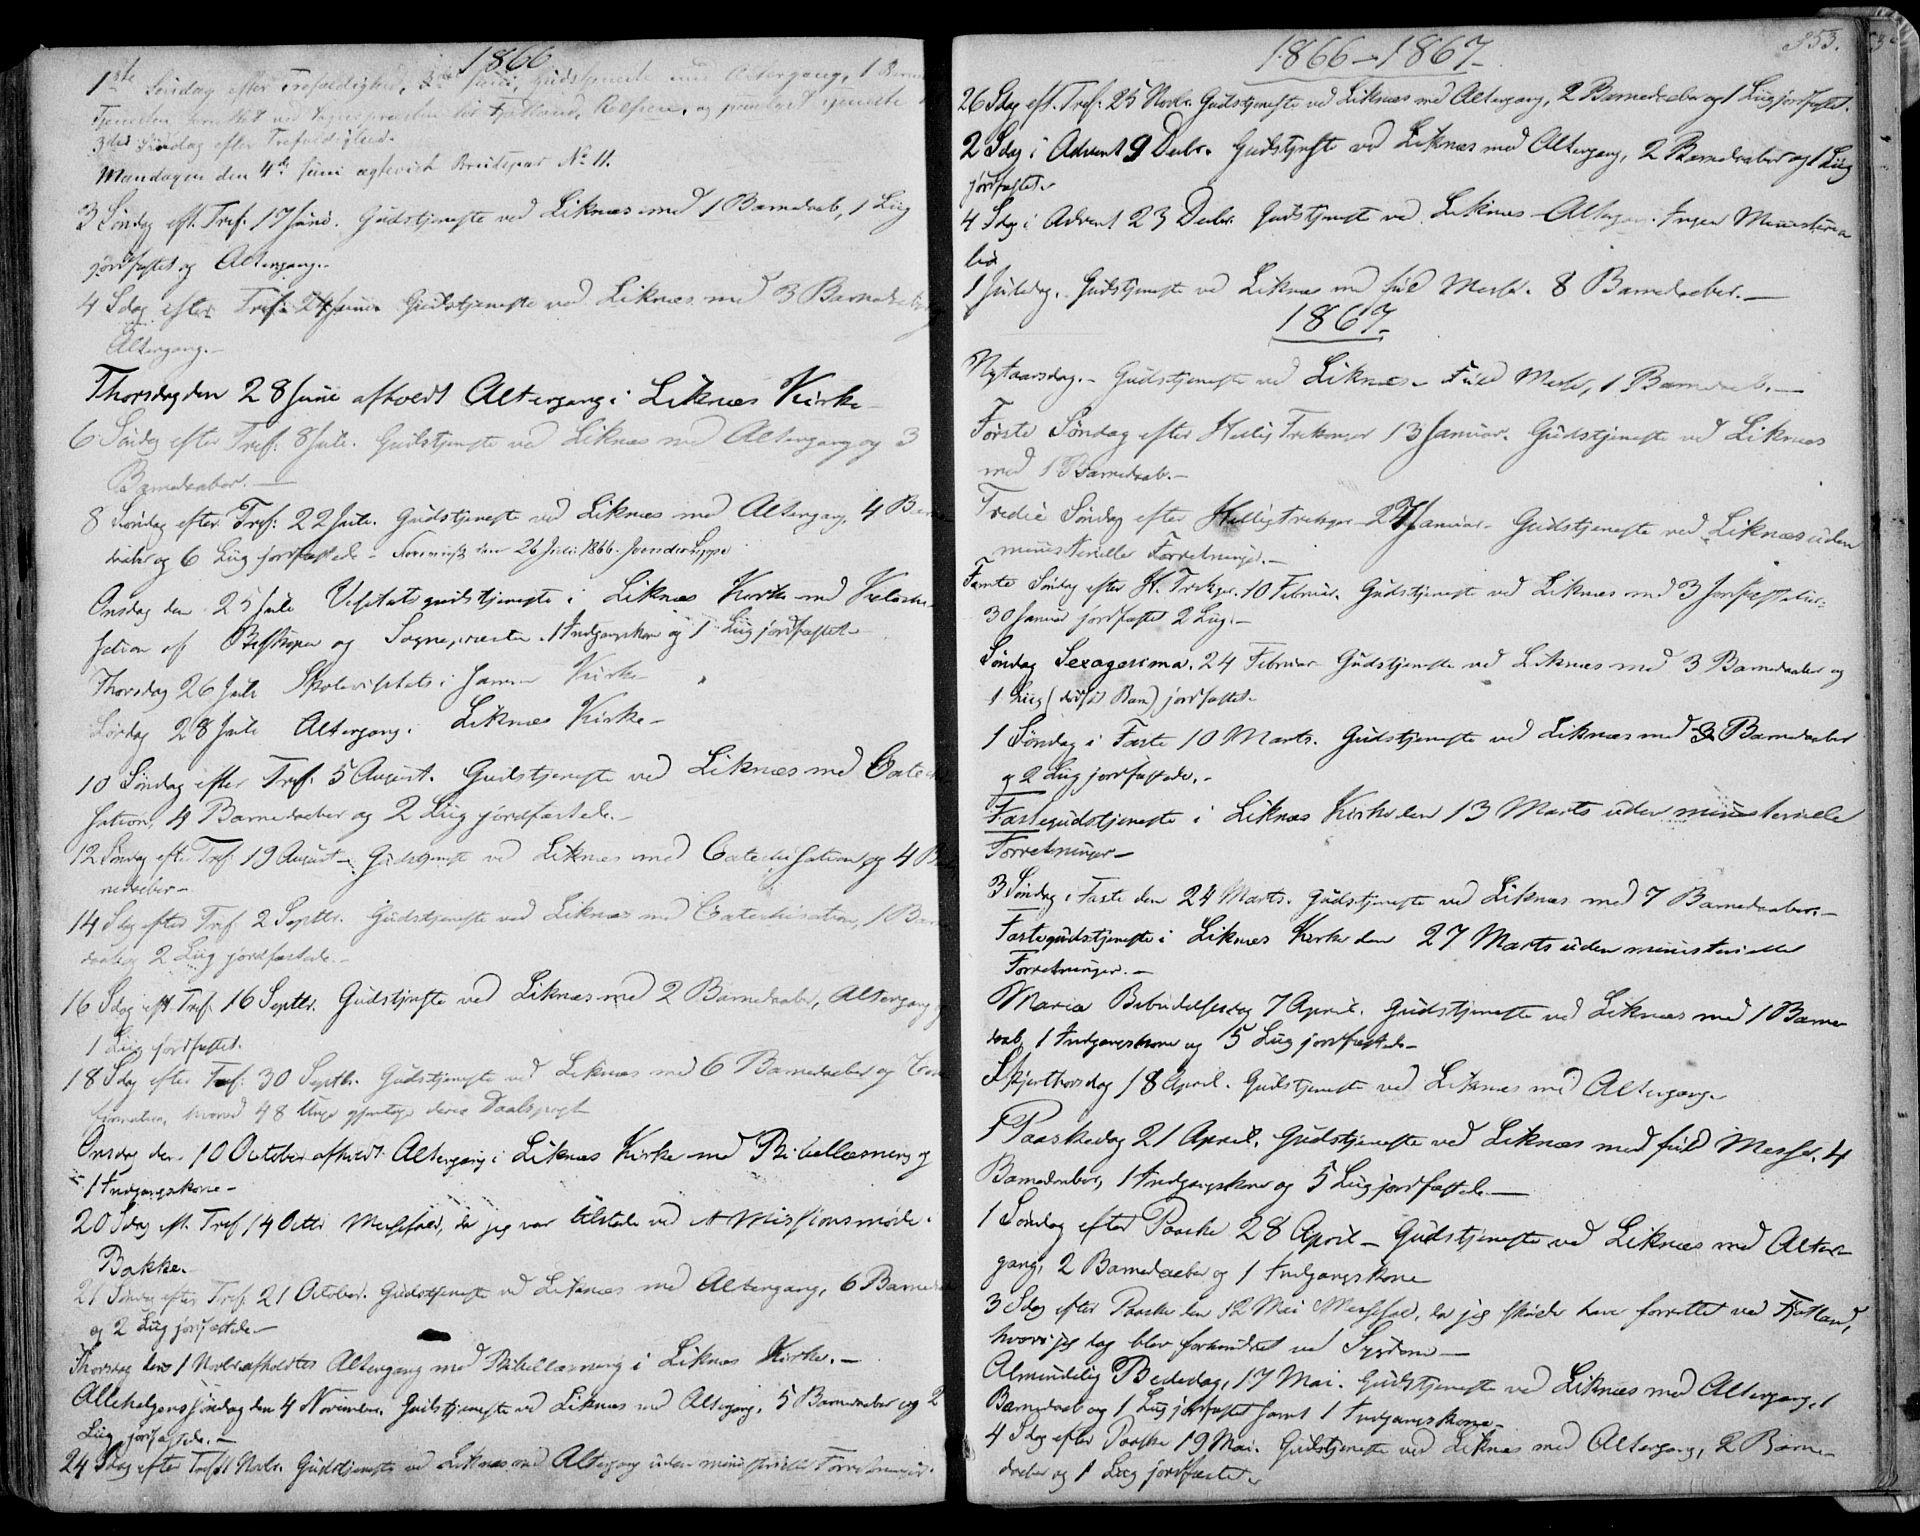 1866
1ste Søndag efter Trefoldighed, 3de Juni, Gudstjeneste med Altergang, 1 Barne
Tjenesten forrettet ved Sognepræsten for Fjotland, og
3die Søndag efter Trefoldighed.
Mandagen den 4de Juni ægteviet Brudepar No 11.
3 Søndag eft. Tref. 17 Juni. Gudstjeneste ved Liknæs med 1 Barnedaab, 1 Liig
jordfæstet og Altergang.
4 Sdag efter Tref. 24 Juni. Gudstjeneste ved Liknæs med 3 Barnedaaber
Altergang.-
Thorsdag den 28 Juni afholdt Altergang i Liknæs Kirke-
6 Søndag efter Tref. 8 Juli. Gudstjeneste ved Liknæs med Altergang og 3
Barnedaaber.-
8 Søndag efter Tref: 22 Juli. Gudstjeneste ved Liknæs med Altergang, 4 Barne
daaber og 6 Liig jordfæstede - den 26 Juli 1866. J von der Lippe
Onsdag den 25 Juli Visitatsgudstjeneste i Liknæs Kirke med Katechi-
sation af Biskopen og Sognepræsten. 1 Indgangskone og 1 Liig jordfæstet-
Thorsdag 26 Juli Skolevisitats i samme Kirke-
Lørdag 28 Juli Altergang i Liknæs Kirke-
10 Søndag efter Tref. 5 August. Gudstjeneste ved Liknæs med Catechi
sation, 4 Barnedaaber og 2 Liig jordfæstede.-
12 Søndag efter Tref: 19 August - Gudstjeneste ved Liknæs med Catechisation og 4 Bar
nedaaber-
14 Sdag efter Tref. 2 Septbr. Gudstjeneste ved Liknæs med Catechisation, 1 Barne
daab og 2 Liig jordfæstede.-
16 Sdag eft. Tref. 16 Septbr. Gudstjeneste ved Liknæs med 2 Barnedaaber, Altergang og
1 Liig jordfæstet.
18 Sdag efter Tref. 30 Septbr. Gudstjeneste ved Liknæs med 6 Barnedaaber og Con
firmation, hvorved 48 Unge gjentoge deres Daabspagt
Onsdag den 10 October afholdt Altergang i Liknæs Kirke med Bibellæsning og
1 Indgangskone-
20 Sdag eft. Tref 14 Octbr Messefald, da jeg var tilstede ved et Missionsmøde i
Bakke.
21 Søndag efter Tref. 21 October. Gudstjeneste ved Liknæs med Altergang, 6 Barneda
og 2 Liig jordfæstede-
Thorsdag den 1 Novbr afholdtes Altergang med Bibellæsning i Liknæs Kirke.-
Allehelgenssøndag den 4 November. Gudstjeneste ved Liknæs med Altergang, 5 Barnedaaber og 2
Liig jordfæstede.-
24 Sdag efter Tref. Novbr. Gudstjeneste ved Liknæs med Altergang uden ministerielle Forretninger.
353.
1866-1867-
26 Sdag eft. Tref: 25 Novbr. Gudstjeneste ved Liknæs med Altergang, 2 Barnedaaber og 1 Liig jordfæstet.
2 Sdag i Advent 9 Decbr. Gudstjeneste ved Liknæs med Altergang, 2 Barnedaaber og 1 Liig
jordfæstet.
4 Sdag i Advent 23 Decbr. Gudstjeneste ved Liknæs - Altergang. Ingen Ministeria
lia
1 Juledag. Gudstjeneste ved Liknæs med fuld Messe. 8 Barnedaaber.-
1867-
Nytaarsdag.- Gudstjeneste ved Liknæs - Fuld Messe, 1 Barnedaab.-
Første Søndag efter Hellig Trekonger 13 Januar. Gudstjeneste ved Liknæs
med 1 Barnedaab.-
Tredie Søndag efter Hellig Trekonger 27 Januar- Gudstjeneste ved Liknæs uden
ministerielle Forretninger.-
Femte Søndag efter H. Trekger. 10 Februar. Gudstjeneste ved Liknæs med 3 Jordfæstelser.
30 Januar jordfæstet 2 Liig.-
Søndag Sexagesima. 24 Februar Gudstjeneste ved Liknæs med 3 Barnedaaber og
1 Liig (dødfødt Barn) jordfæstet-
1 Søndag i Faste 10 Marts. Gudstjeneste ved Liknæs med 3 Barnedaaber
og 2 Liig jordfæstede.-
Fastegudstjeneste i Liknæs Kirke den 13 Marts uden ministerielle
Forretninger-
3 Søndag i Faste den 24 Marts. Gudstjeneste ved Liknæs med 7 Barnedaaber.-
Fastegudstjeneste i Liknæs Kirke den 27 Marts uden ministerielle
Forretninger.-
Maria Bebudelsesdag 7 April. Gudstjeneste ved Liknæs med 1 Barne
daab, 1 Indgangskone og 5 Liig jordfæstede-
Skjærthorsdag 18 April. Gudstjeneste ved Liknæs med Altergang.
1 Paaskedag 21 April. Gudstjeneste ved Liknæs med fuld Messe. 4
Barnedaaber, 1 Indgangskone og 5 Liig jordfæstede.-
1 Søndag efter Paaske 28 April - Gudstjeneste ved Liknæs med Alter
gang, 2 Barnedaaber og 1 Indgangskone
3 Sdag efter Paaske den 12 Mai Messefald, da jeg skulde have forrettet ved Fjotland,
hvori jeg dog blev forhindret ved Sygdom-
Almindelig Bededag, 17 Mai. Gudstjeneste ved Liknæs med Altergang, 1
Barnedaab og 1 Liig jordfæstet samt 1 Indgangskone-
4 Sdag efter Paaske 19 Mai. Gudstjeneste ved Liknæs med Altergang, 2 Barne-
daaber og 1 Liig jordfæstet.